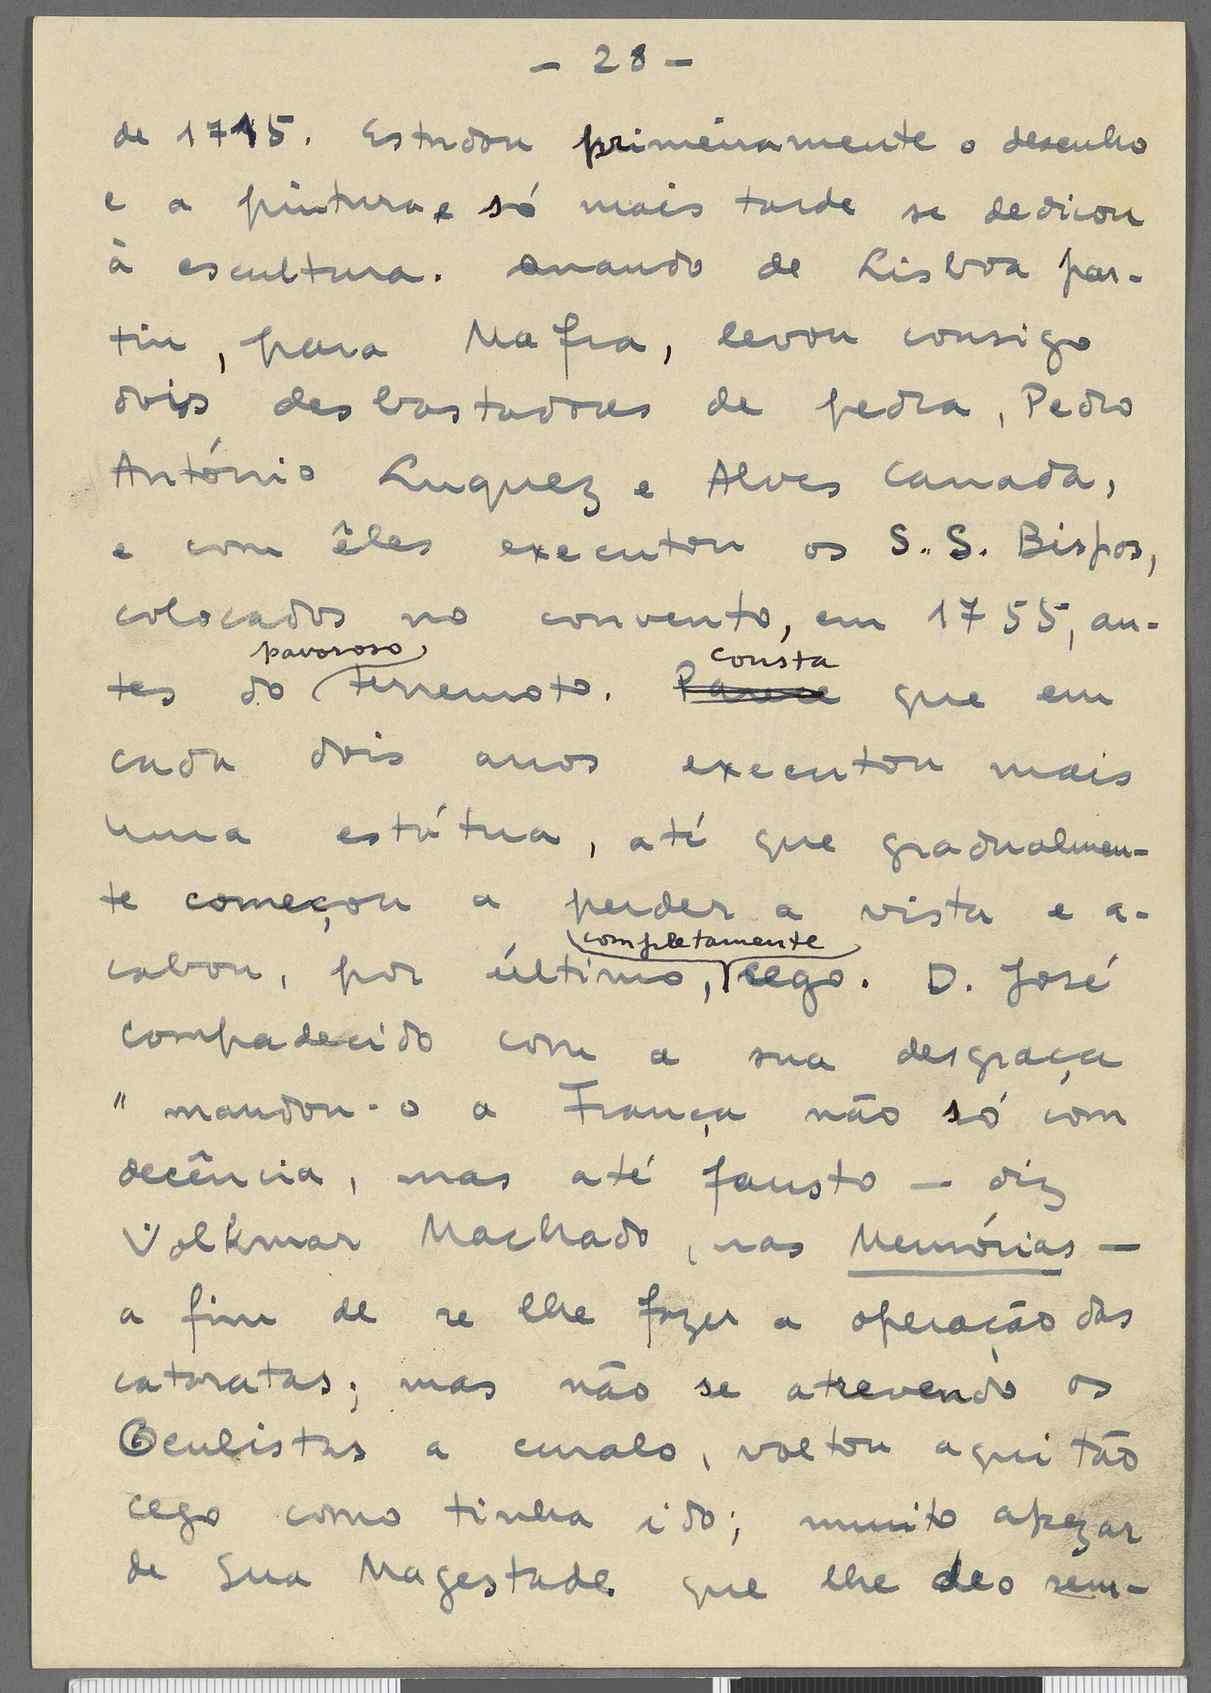 - 28 -
de 1715. Estudou primeiramente o desenho
e a pintura e só mais tarde se dedicou
à escultura. Quando de Lisboa par-
tiu, para Mafra, levou consigo
dois desbastadores de pedra, Pedro
António Luquez e Alves Canada,
e com êles executou os S.S. Bispos,
colocados no convento, em 1755, an-
pavoroso consta
tes do terremoto. Parece que em
cada dois anos executou mais
uma estátua, até que gradualmen-
te começou a perder a vista e a-
completamente
cabou, por último, cego. D. José
compadecido com a sua desgraça
"mandou-o a França não só com
decência, mas até fausto — diz
Volkmar Machado, nas Memórias —
a fim de se lhe fazer a operação das
cataratas; mas não se atrevendo os
Oculistas a curalo, voltou aqui tão
cego como tinha ido; muito apezar
de Sua Magestade que lhe deo sem-